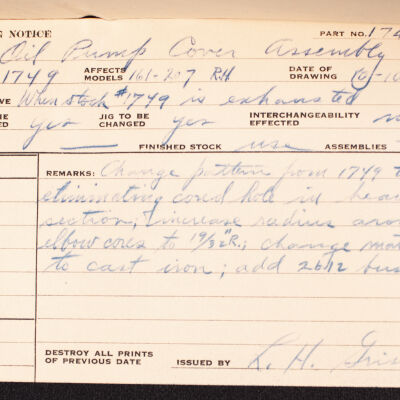 NOTICE PART NO. 174
Oil Pump Cover Assembly
1749 AFFECTS MODELS 161-207 R.H. DATE OF DRAWING 10-10
When stock #1749 is exhausted
yes JIG TO BE CHANGED yes INTERCHANGEABILITY EFFECTED
FINISHED STOCK use ASSEMBLIES
REMARKS: Change pattern from 1749
eliminating cored hole in
section; increase radius
elbow cores to 19/32"R.; change
to cast iron; add 2612
DESTROY ALL PRINTS OF PREVIOUS DATE ISSUED BY L. H.